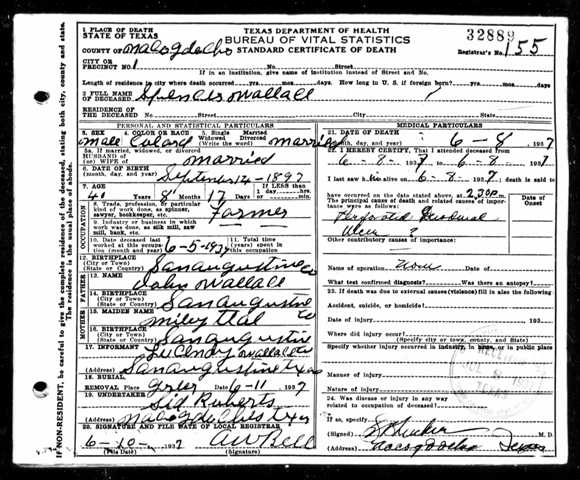 1 PLACE OF DEATH
STATE OF TEXAS
TEXAS DEPARTMENT OF HEALTH
BUREAU OF VITAL STATISTICS
STANDARD CERTIFICATE OF DEATH
32889
Registrar's No. 155
COUNTY OF Nacogdoches
CITY OR
PRECINCT NO. 1 No. Street
If in an institution, give name of institution instead of Street and No.
Length of residence in city where death occurred yrs. mos. days. How long in U. S. if foreign born? yrs. mos. days
2 FULL NAME
OF DECEASED Wallace
RESIDENCE OF
THE DECEASED No. Street City State
PERSONAL AND STATISTICAL PARTICULARS
3. SEX 4. COLOR OR RACE 5. Single Married Widowed Divorced
Male Colard married
5a. If married, widowed, or divorced
HUSBAND OF
(or) WIFE OF married
6. DATE OF BIRTH
(month, day, and year) September 14-1897
7. AGE IF LESS than 1 day
40 Years 8 Months 17 Days
8. Trade, profession, or particular
kind of work done, as spinner,
sawyer, bookkeeper, etc. Farmer
9. Industry or business in which
work was done, as silk mill, saw
mill, bank, etc.
10. Date deceased last
worked at this occupation 6-5-1937
11. Total time (years) spent in
this occupation
OCCUPATION
12. BIRTHPLACE
(City or Town)
(State or Country) San Augustine Co
13. NAME John Wallace
14. BIRTHPLACE
(City or Town)
(State or Country) San Augustine
FATHER
15. MAIDEN NAME Miley
16. BIRTHPLACE
(City or Town)
(State or Country) San Augustine Co
MOTHER
17. INFORMANT Wallace
(Address) San Augustine Texas
18. BURIAL
REMOVAL Place Date 6-11 1937
19. UNDERTAKER Sid Roberts
(Address) Nacogdoches Texas
20. SIGNATURE AND FILE DATE OF LOCAL REGISTRAR
6-10- 1937 A W Bell
(Signature)
MEDICAL PARTICULARS
21. DATE OF DEATH
(month, day, and year) 6-8 1937
22. I HEREBY CERTIFY, THAT I attended deceased from
6-8- 1937 to 6-8- 1937
I last saw h alive on 6-8- 1937, death is said to
have occurred on the date stated above, at 2
The principal cause of death and related causes of importance were as follows: Date of Onset
Perforated Duodenal
Ulcer ?
Other contributory causes of importance:
Name of operation None Date of
What test confirmed diagnosis? Was there an autopsy?
23. If death was due to external causes (violence) fill in also the following
Accident, suicide, or homicide?
Date of injury 193
Where did injury occur?
(Specify city or town, county, and State)
Specify whether injury occurred in industry, in home, or in public place
Manner of injury
Nature of injury
24. Was disease or injury in any way
related to occupation of deceased?
If so, specify
(Signed) Tucker M. D.
(Address) Nacogdoches Texas
IF NON-RESIDENT, be careful to give the complete residence of the deceased, stating both city, county and state.
The residence is the usual place of abode.